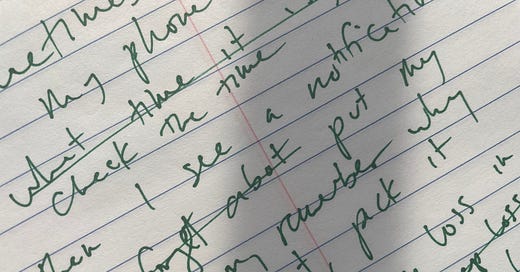 my phone
what time it is
check the time
I see a notificatio
forget about put my
remember why
I pick it
loss in
loss